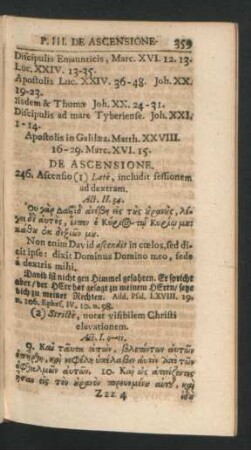 P. III. DE ASCENSIONE. 359
Discipulis Emaunticis, Marc. XVI. 12. 13.
Luc. XXIV. 13-35.
Apostolis Luc. XXIV. 36-48. Joh. XX.
19-23.
Iisdem & Thomæ Joh. XX. 24-31.
Discipulis ad mare Tyberiense. Joh. XXI.
1-14.
Apostolis in Galilæa. Matth. XXVIII.
16-29. Marc. XVI. 15.
DE ASCENSIONE.
246. Ascensio (1) Latè, includit sessionem
ad dextram.
Act. II. 34.
Οὐ γὰρ Δαβὶδ ἀνέβη εἰς τὰς ὐρανὰς, λέ-
γει δὲ αὐτὸς, εἶπεν ὁ Κύρι۞ τῷ Κυρίῳ μυ
κάθυ ἐκ δεξιῶν μυ.
Non enim David ascendit in cœlos, sed di-
cit ipse: dixit Dominus Domino meo, sede
à dextris mihi.
David ist nicht gen Himmel gefahren. Er spricht
aber/ der HErr hat gesagt zu meinem HErrn/ setze
dich zu meiner Rechten. Add. Psal. LXVIII. 19.
n. 106. Ephes. IV. 10. n. 98.
(2) Strictè, notat visibilem Christi
elevationem.
Act. I. 9-11.
9. Καὶ ταῦτα εἰπὼν, βλεπόντων αὐτῶν
ἐπήρθη, καὶ νεφέλη ὑπέλαβεν αὐτὸν ἀπὸ τῶν
ὀφθαλμῶν αὐτῶν. 10. Καὶ ὡς ἀτενίζοντες
ἦσαν εἰς τὸν ὐρανὸν πορευομένυ αὐτῦ, καὶ
Zzz 4